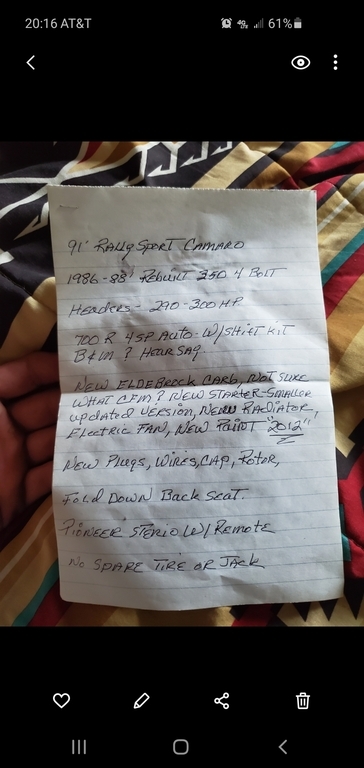 20:16 AT&T
4G LTE 61%
91' Rally Sport Camaro
1986-88' Rebuilt 350 4 Bolt
Headers - 290-300 HP
700 R 4 SP Auto - W/Shift Kit
B&M ?
New Eldebrock Carb, Not Sure
What CFM? New Starter-Smaller
updated version, New Radiator,
Electric Fan, New Paint "2012"
New Plugs, Wires, Cap, Rotor,
Fold Down Back Seat.
Pioneer Sterio W/ Remote
No Spare Tire or Jack